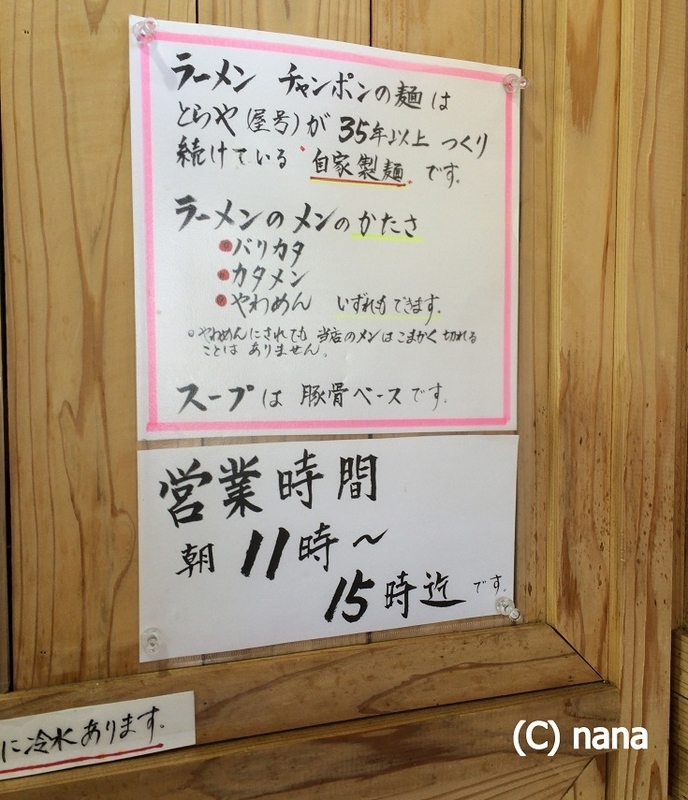 ラーメン チャンポンの麺は
とらや(屋号)が 35年以上 つくり
続けている 自家製麺 です。
ラーメンのメンのかたさ
バリカタ
カタメン
やわめん いずれもできます。
○やわめんにされても 当店のメンはこまかく切れる
ことはありません。
スープは 豚骨ベースです。
営業時間
朝 11時～
15時迄です。
に冷水あります。
(C) nana